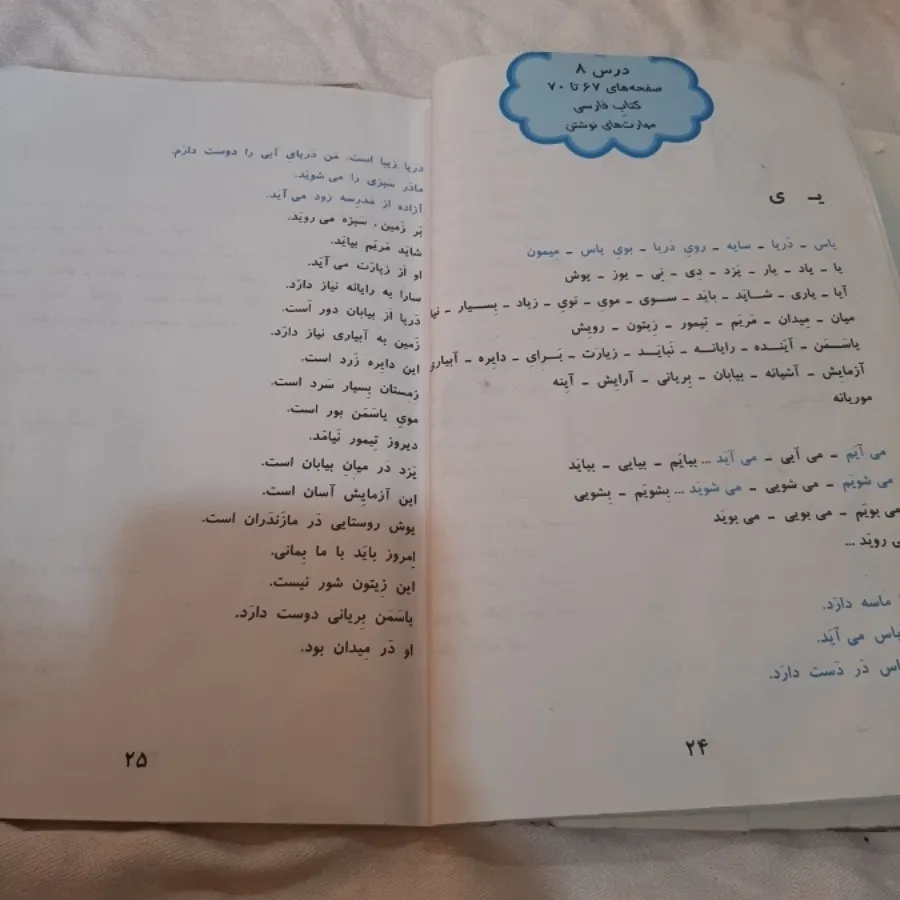 درس ۸
صفحه‌های ۶۷ تا ۷۰
کتاب فارسی
مهارت‌های نوشتن
یـ ی
یاس ـ دَریا ـ سایه ـ رویِ دَریا ـ بویِ یاس ـ مِیمون
یا ـ یاد ـ یار ـ یَزد ـ دِی ـ نِی ـ یوز ـ یوش
آیا ـ یاری ـ شـایَد ـ بایَد ـ سـوی ـ موی ـ توی ـ زیاد ـ بِسـیار ـ
میان ـ مِیدان ـ مَریَم ـ تِیمور ـ زِیتون ـ رویِش
یاسَـمَن ـ آیَنده ـ رایانـه ـ نَبایَـد ـ زیارَت ـ بَـرایِ ـ دایِره ـ آبیاری
آزمایِش ـ آشیانه ـ بیابان ـ بِریانی ـ آرایِش ـ آینه
موریانه
می آیَم ـ می آیی ـ می آیَد ... بیایَم ـ بیایی ـ بیایَد
می شویَم ـ می شویی ـ می شویَد ... بِشویَم ـ بِشویی
می بویَم ـ می بویی ـ می بویَد
رویَد ...
ماسه دارَد.
یاس می آیَد.
دَر دَست دارَد.
۲۴
دریا زیبا است. مَن دَریایِ آبی را دوست دارَم.
مادَر سَبزی را می شویَد.
آزاده از مَدرِسه زود می آیَد.
بَر زَمین، سَبزه می رویَد.
شایَد مَریَم بیایَد.
او از زیارَت می آیَد.
سارا به رایانه نیاز دارَد.
دَریا از بیابان دور است.
زَمین به آبیاری نیاز دارَد.
این دایِره زَرد است.
زِمِستان بِسیار سَرد است.
مویِ یاسَمَن بور است.
دیروز تِیمور نَیامَد.
یَزد دَر میانِ بیابان است.
این آزمایِش آسان است.
یوش روستایی دَر مازَندَران است.
اِمروز بایَد با ما بِمانی.
این زِیتون شور نیست.
یاسَمَن بِریانی دوست دارَد.
او دَر مِیدان بود.
۲۵